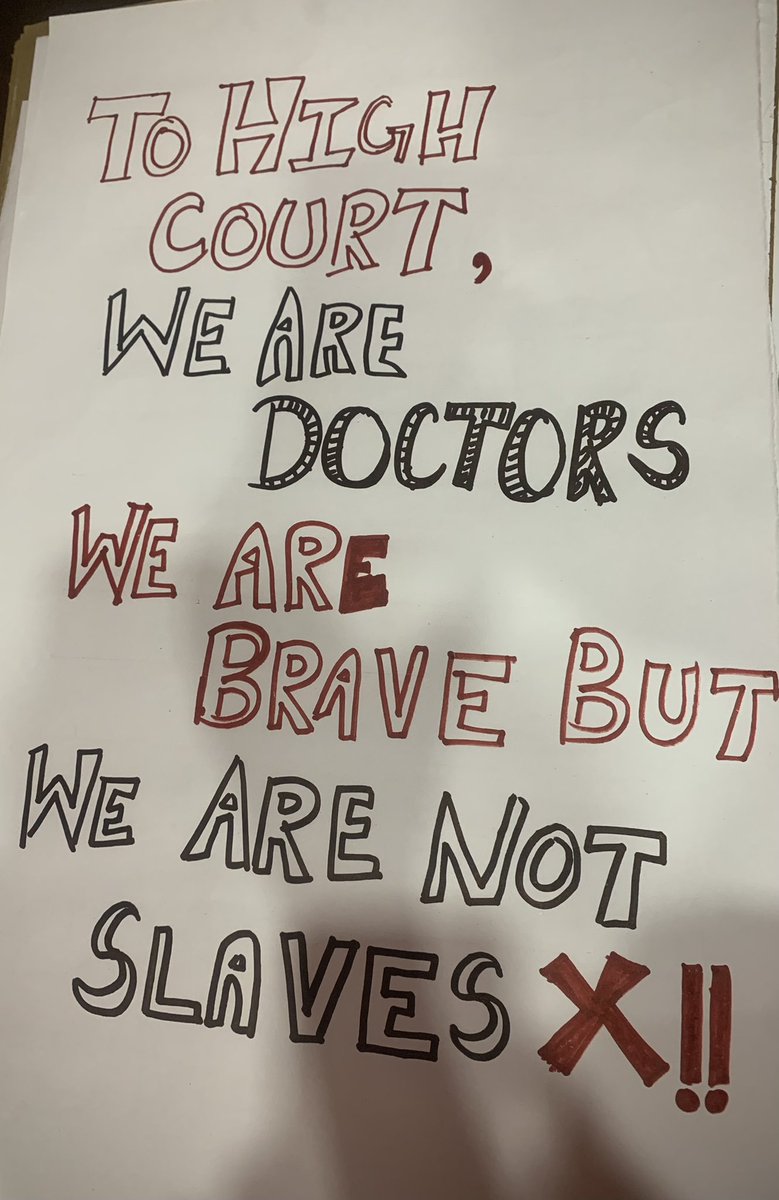 TO HIGH
COURT,
WE ARE
DOCTORS
WE ARE
BRAVE BUT
WE ARE NOT
SLAVES X!!